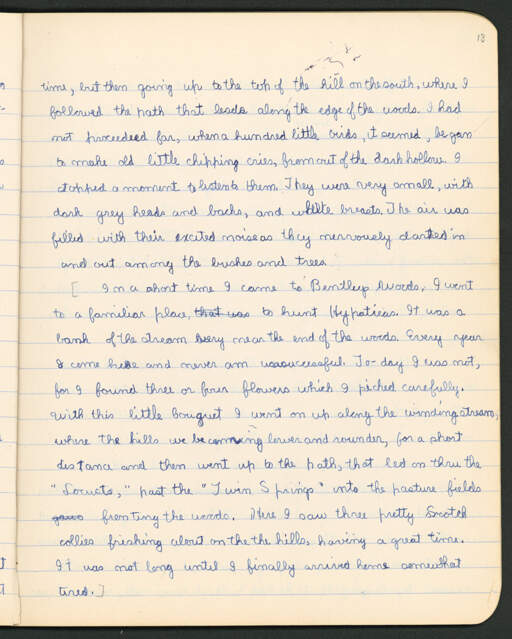 13
time, but then going up to the top of the hill on the south, where I
followed the path that leads along the edge of the woods. I had
not proceeded far, when a hundred little birds, it seemed, began
to make old little chipping cries, from out of the dark hollow. I
stopped a moment to listen to them. They were very small, with
dark grey heads and backs, and white breasts. The air was
filled with their excited noise as they nervously darted in
and out among the bushes and trees.
[ In a short time I came to Bentley Woods. I went
to a familiar place, that was to hunt Hypaticas. It was a
bank of the stream very near the end of the woods. Every year
I come here and never am unsuccessful. To-day I was not,
for I found three or four flowers which I picked carefully.
With this little bouquet I went on up along the winding stream,
where the hills were becoming lower and rounder, for a short
distance and then went up to the path, that led on thru the
"Locusts," past the "Twin Springs" into the pasture fields
fronting the woods. Here I saw three pretty Scotch
collies frisking about on the the hills, having a great time.
It was not long until I finally arrived home somewhat
tired.]